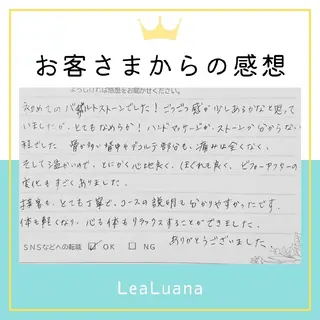 お客さまからの感想
よろしければ感想をお聞かせください。
初めてのバザルトストーンでした！ごつごつ感が少しあるかなと思って
いましたが、とてもなめらか！ハンドマッサージか、ストーンか分からない
程でした。骨が多い背中やデコルテ部分も、痛みは全くなく、
そして温かいので、とにかく心地良く、ほぐれも良く、ビフォーアフターの
変化もすごくありました。
接客も、とても丁寧で、コースの説明も分かりやすかったです。
体も軽くなり、心も体もリラックスすることができました。
ありがとうございました。
SNSなどへの転載 ☑OK □NG
LeaLuana